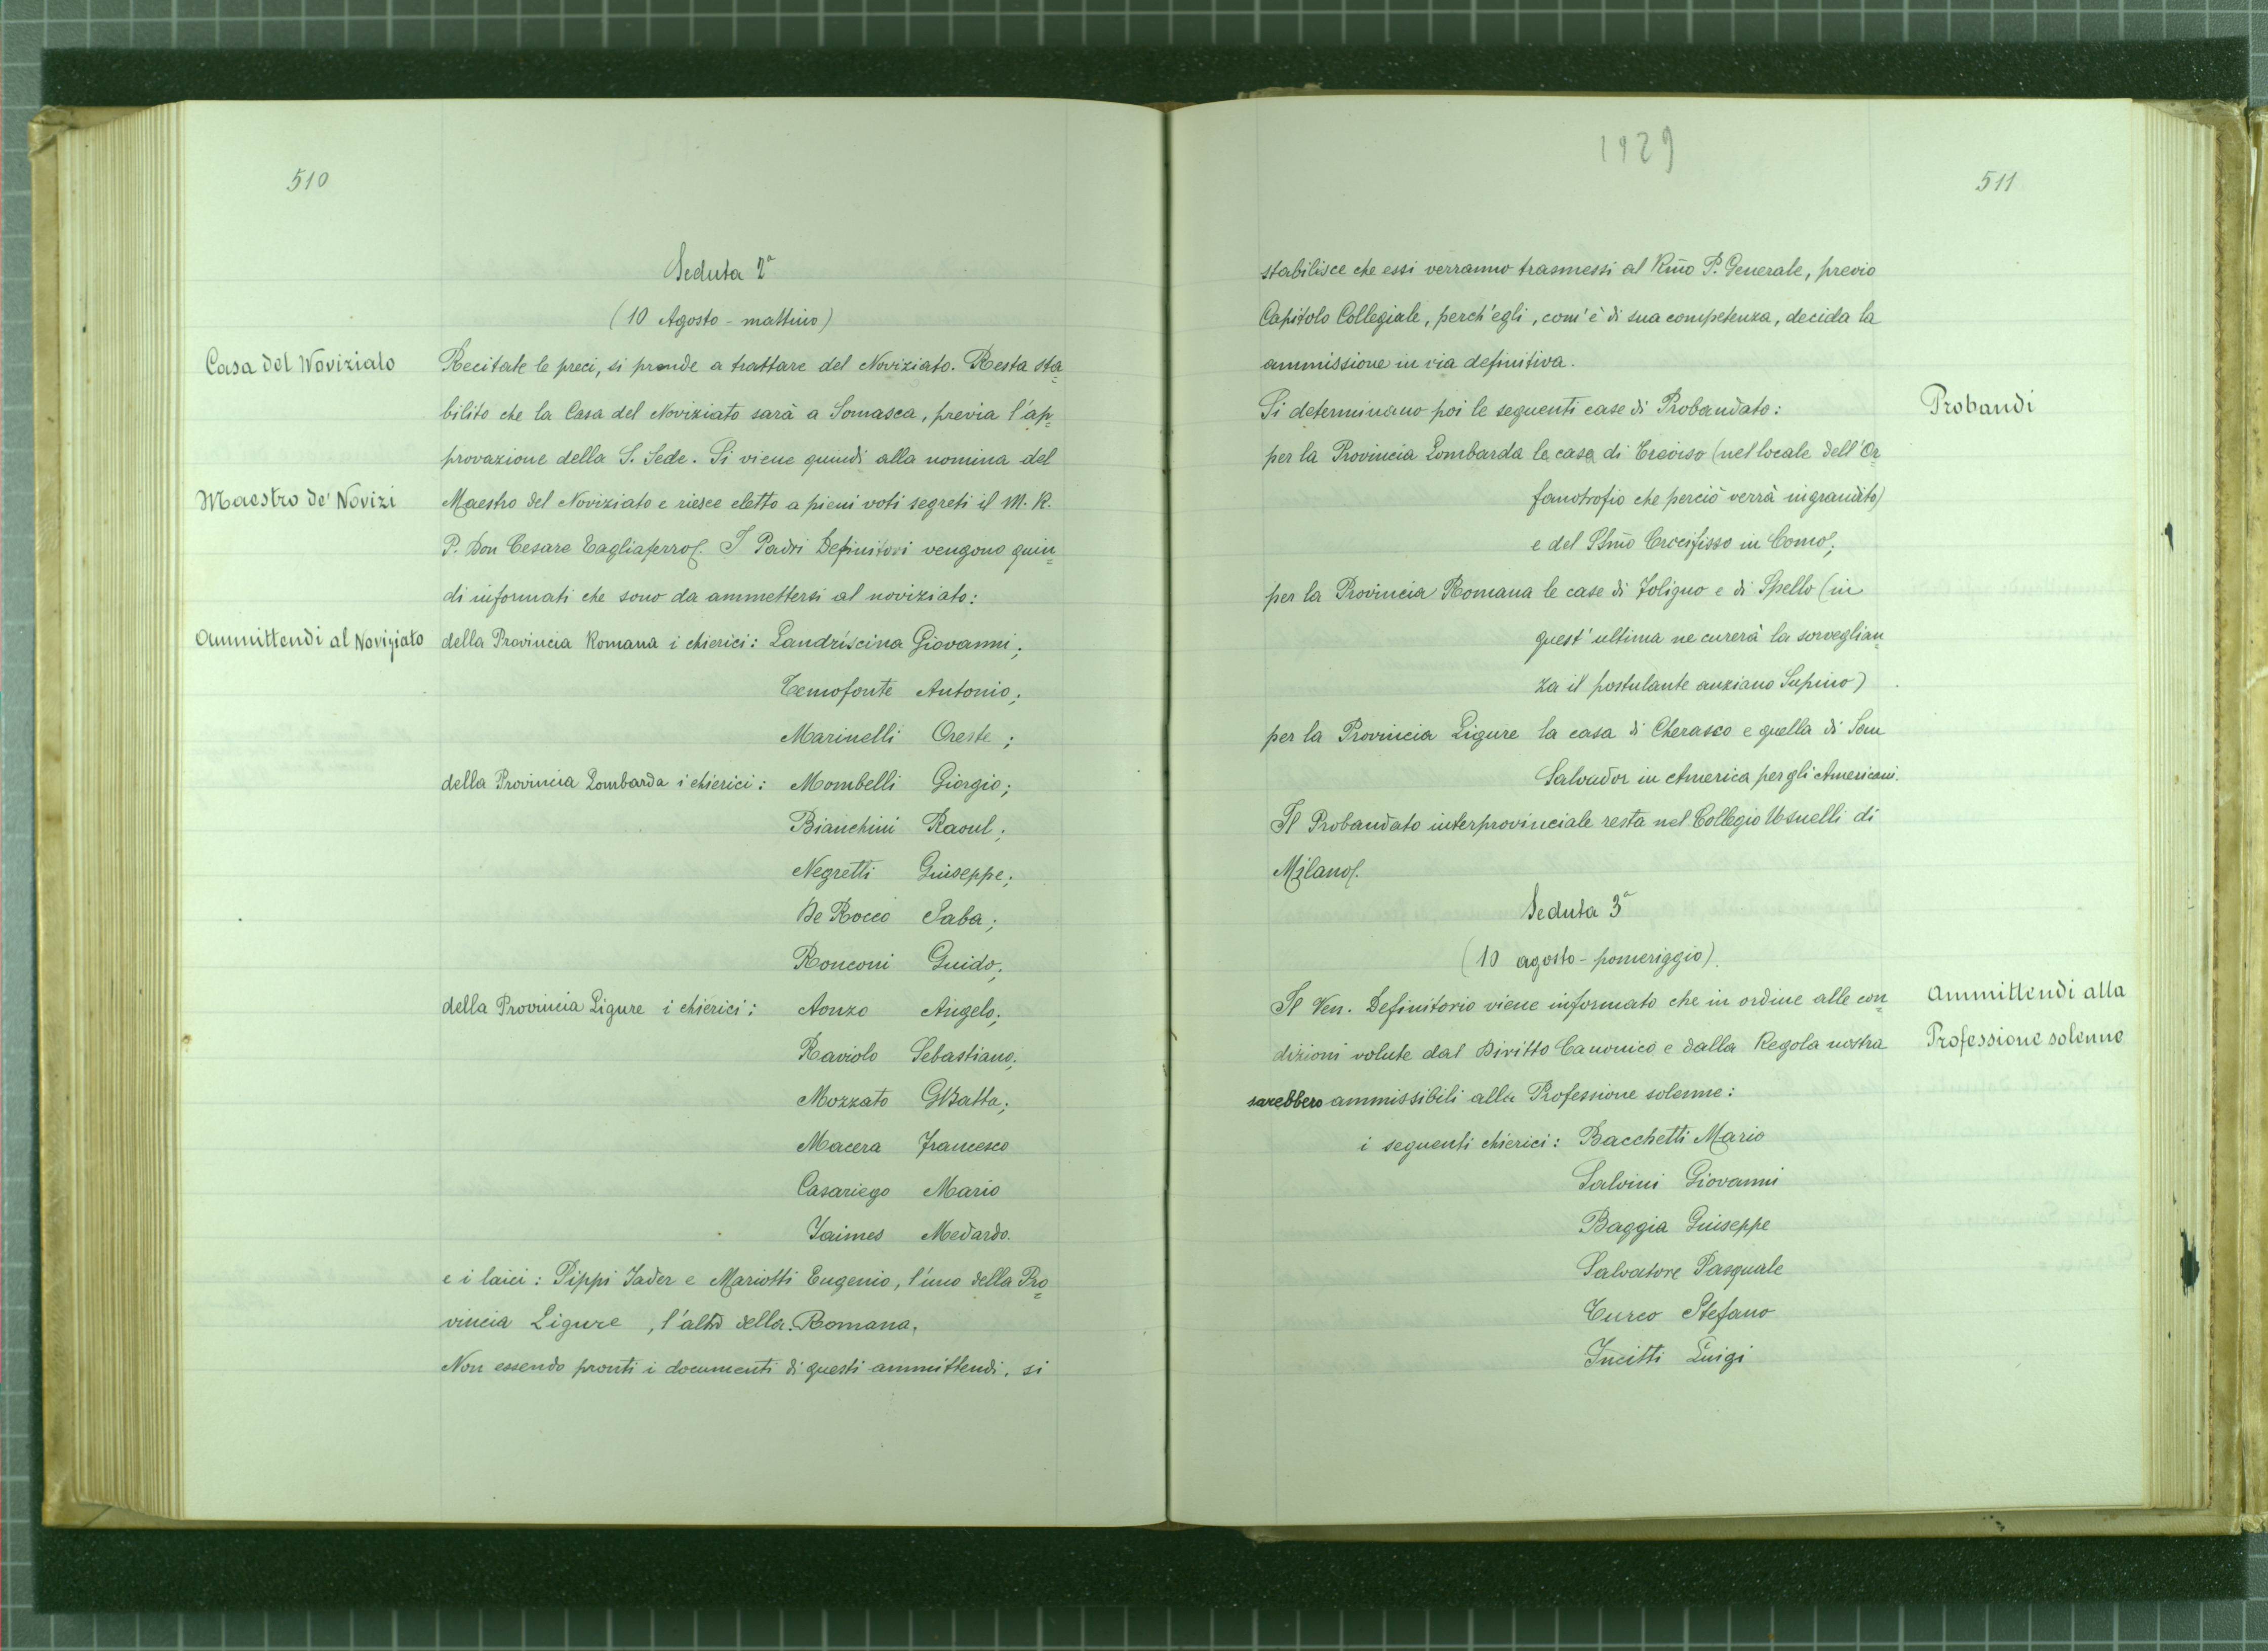 510
Seduta 2ª
(10 Agosto - mattino)
Casa del Noviziato
Recitate le preci, si prende a trattare del Noviziato. Resta sta=
bilito che la Casa del Noviziato sarà a Somasca, previa l'ap=
provazione della S. Sede. Si viene quindi alla nomina del
Maestro de' Novizi
Maestro del Noviziato e riesce eletto a pieni voti segreti il M. R.
P. Don Cesare Tagliaferro. I Padri Definitori vengono quin=
di informati che sono da ammettersi al noviziato:
Ammittendi al Noviziato
della Provincia Romana i chierici: Landriscina Giovanni;
Temofonte Antonio;
Marinelli Oreste;
della Provincia Lombarda i chierici: Mombelli Giorgio;
Bianchini Raoul;
Negretti Giuseppe;
De Rocco Saba;
Ronconi Guido;
della Provincia Ligure i chierici: Aonzo Angelo;
Raviolo Sebastiano;
Mozzato GBatta;
Macera Francesco
Casariego Mario
Jaimes Medardo.
e i laici: Pippi Jader e Mariotti Eugenio, l'uno della Pro=
vincia Ligure, l'altro della Romana.
Non essendo pronti i documenti di questi ammittendi, si
1929
511
stabilisce che essi verranno trasmessi al Rm̃o P. Generale, previo
Capitolo Collegiale, perch'egli, com'è di sua competenza, decida la
ammissione in via definitiva.
Si determinano poi le seguenti case di Probandato:
Probandi
per la Provincia Lombarda la casa di Treviso (nel locale dell'Or=
fanotrofio che perciò verrà ingrandito)
e del SSm̃o Crocifisso in Como;
per la Provincia Romana le case di Foligno e di Spello (in
quest'ultima ne curerà la sorveglian=
za il postulante anziano Supino)
per la Provincia Ligure la casa di Cherasco e quella di San
Salvador in America per gli Americani.
Il Probandato interprovinciale resta nel Collegio Usuelli di
Milano.
Seduta 3ª
(10 agosto - pomeriggio).
Il Ven. Definitorio viene informato che in ordine alle con=
Ammittendi alla
dizioni volute dal Diritto Canonico e dalla Regola nostra
Professione solenne
sarebbero ammissibili alla Professione solenne:
i seguenti chierici: Bacchetti Mario
Salvini Giovanni
Baggia Giuseppe
Salvatore Pasquale
Turco Stefano
Incitti Luigi